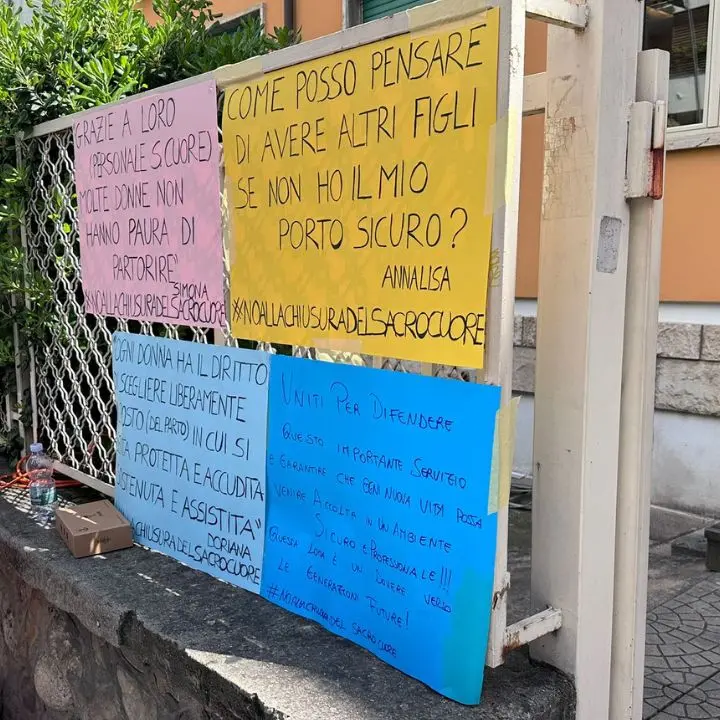 GRAZIE A LORO
(PERSONALE S CUORE)
MOLTE DONNE NON
HANNO PAURA DI
PARTORIRE
SIMONA
#NOALLACHIUSURADELSACROCUORE
COME POSSO PENSARE
DI AVERE ALTRI FIGLI
SE NON HO IL MIO
PORTO SICURO?
ANNALISA
#NOALLACHIUSURADELSACROCUORE
OGNI DONNA HA IL DIRITTO
SCEGLIERE LIBERAMENTE
OSTO (DEL PARTO) IN CUI SI
TA PROTETTA E ACCUDITA
STENUTA E ASSISTITA"
DORIANA
ACHIUSURADELSACROCUORE
UNITI PER DIFENDERE
QUESTO IMPORTANTE SERVIZIO
E GARANTIRE CHE OGNI NUOVA VITA POSSA
VENIRE ACCOLTA IN UN AMBIENTE
SICURO E PROFESSIONALE!!!
QUESTA LOTTA È UN DOVERE VERSO
LE GENERAZIONI FUTURE!
#NOALLACHIUSURA DEL SACRO CUORE